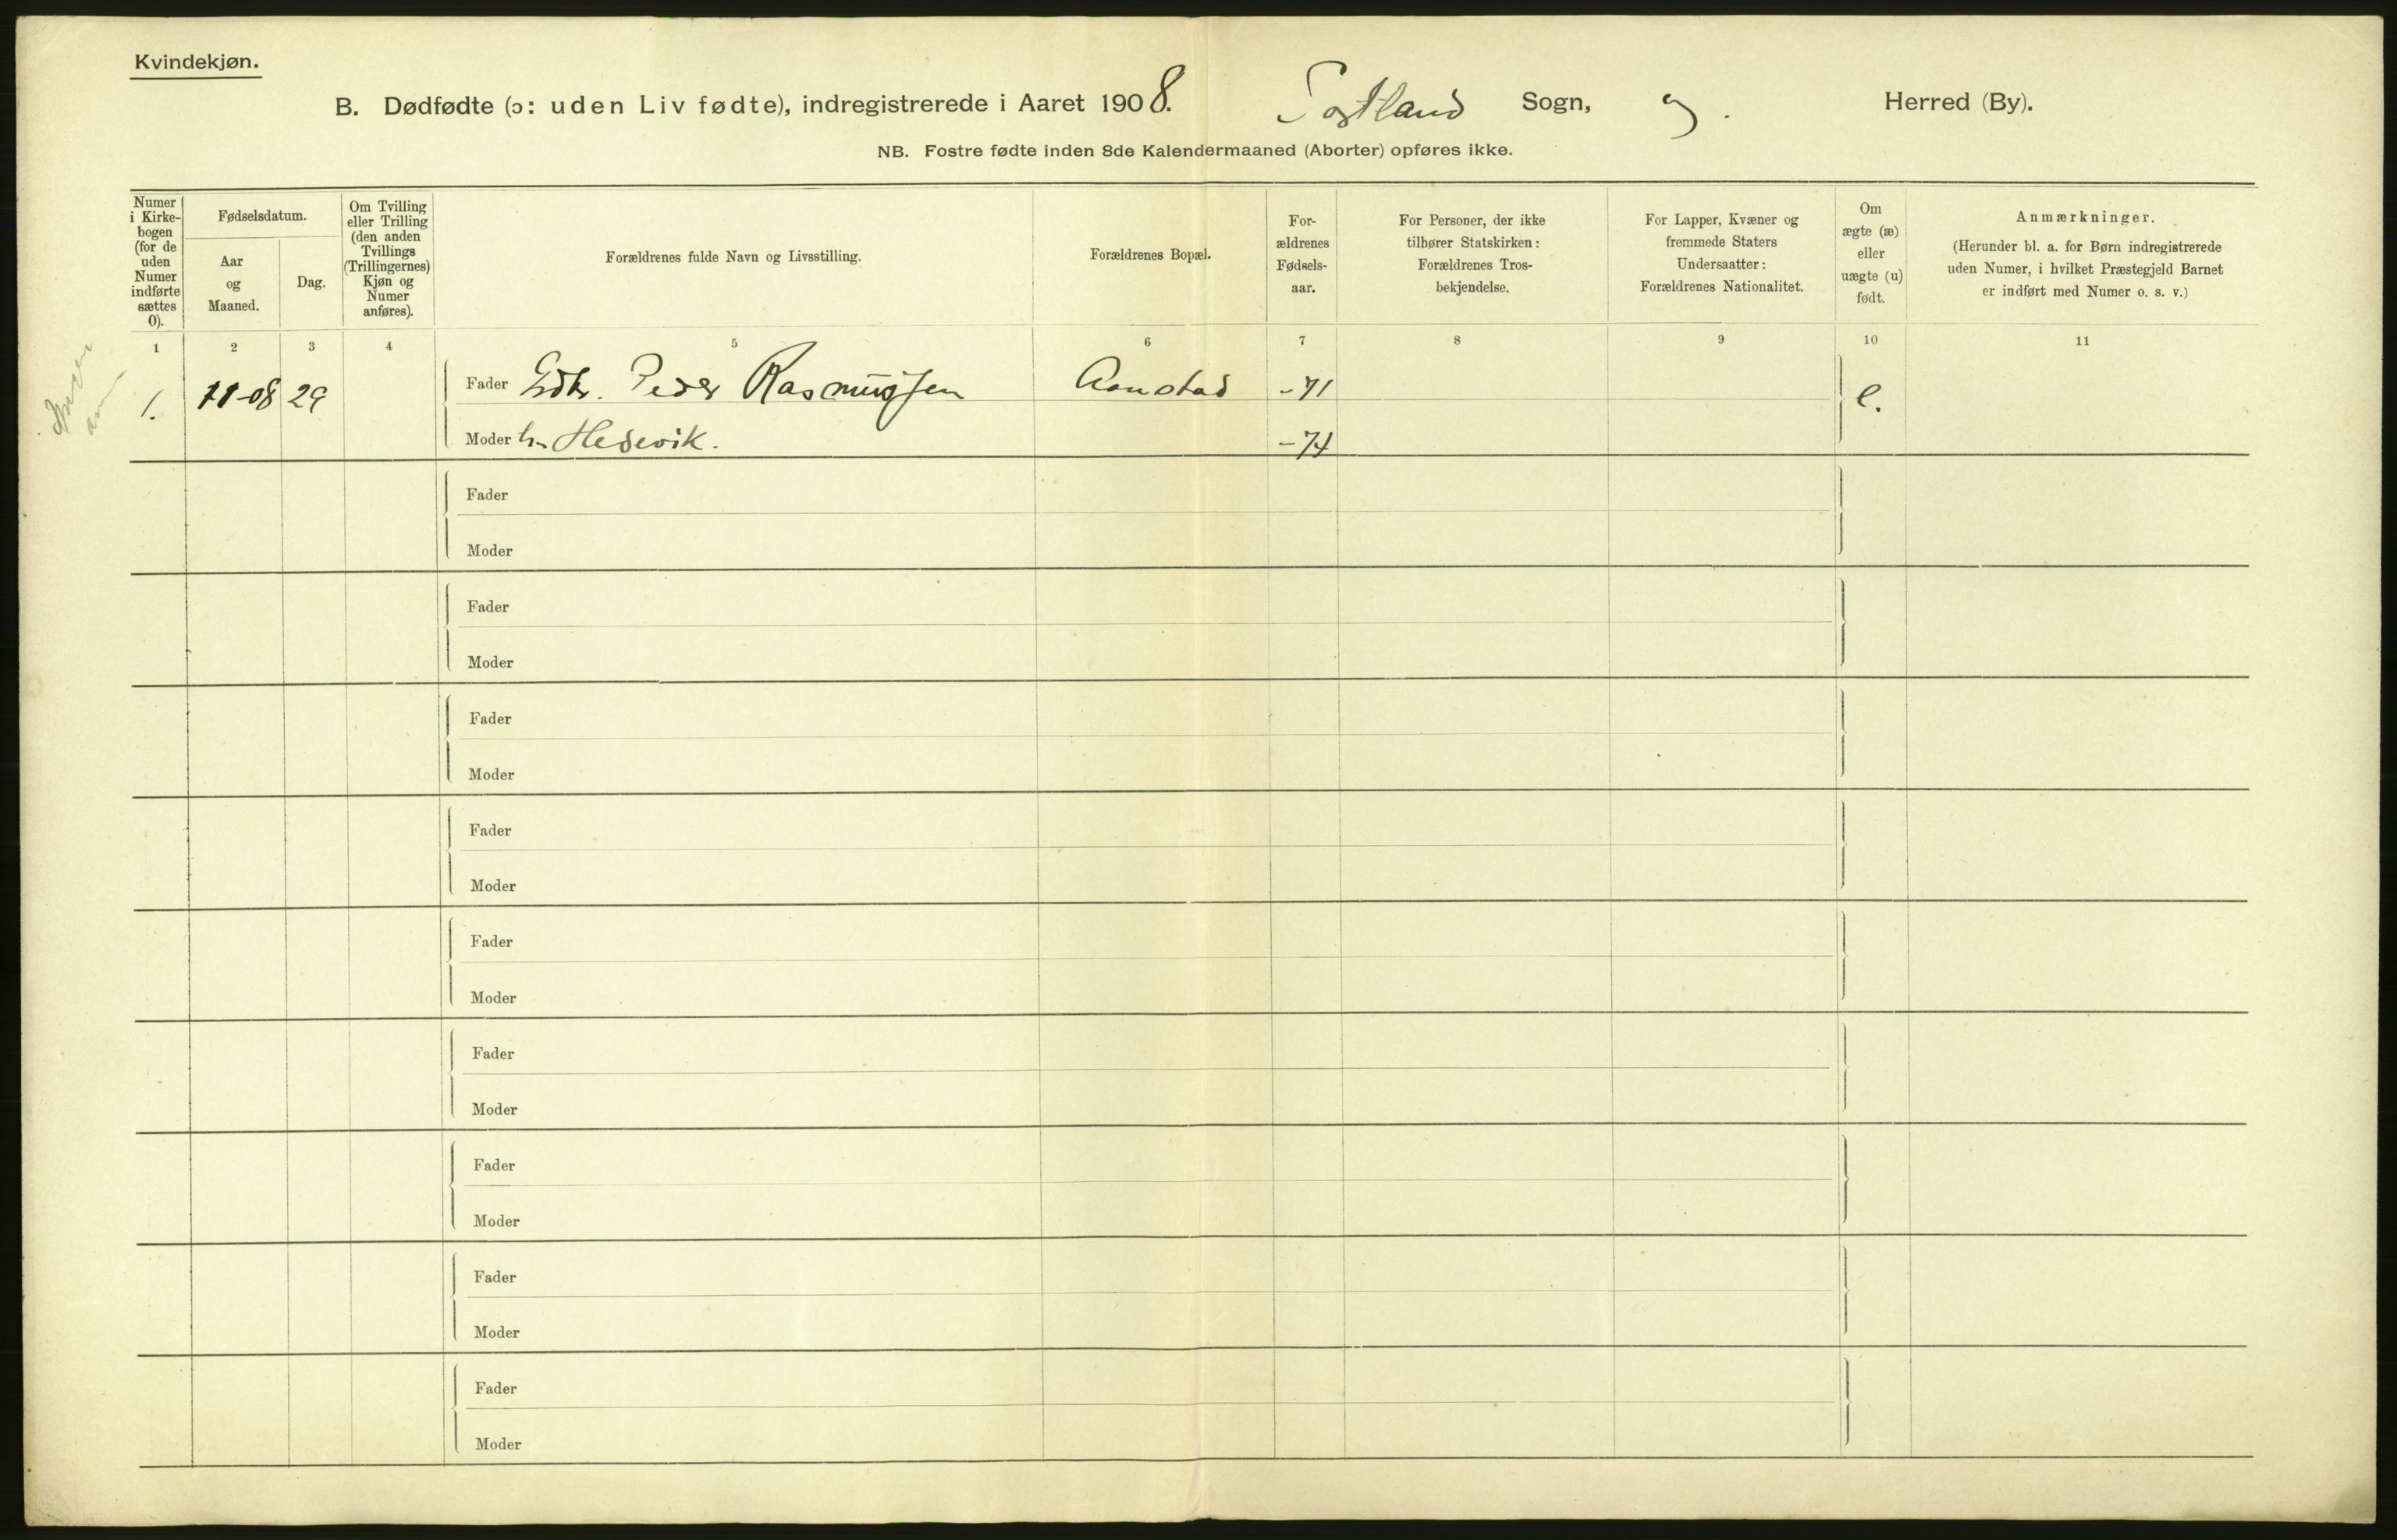 Kvindekjøn.
B. Dødfødte (ɔ: uden Liv fødte), indregistrerede i Aaret 1908. Sogn, Herred (By).
NB. Fostre fødte inden 8de Kalendermaaned (Aborter) opføres ikke.
Numer i Kirkebogen (for de uden Numer indførte sættes 0).
Fødselsdatum.
Aar og Maaned.
Dag.
Om Tvilling eller Trilling (den anden Tvillings (Trillingernes) Kjøn og Numer anføres).
Forældrenes fulde Navn og Livsstilling.
Forældrenes Bopæl.
Forældrenes Fødselsaar.
For Personer, der ikke tilhører Statskirken: Forældrenes Trosbekjendelse.
For Lapper, Kvæner og fremmede Staters Undersaatter: Forældrenes Nationalitet.
Om ægte (æ) eller uægte (u) født.
Anmærkninger.
(Herunder bl. a. for Børn indregistrerede uden Numer, i hvilket Præstegjeld Barnet er indført med Numer o. s. v.)
1 2 3 4 5 6 7 8 9 10 11
1. 11-08 29 Fader Gdbr. Peder Rasmussen Aanstad -71 e.
Moder h. Hedevik. -74
Fader
Moder
Fader
Moder
Fader
Moder
Fader
Moder
Fader
Moder
Fader
Moder
Fader
Moder
Fader
Moder
Fader
Moder